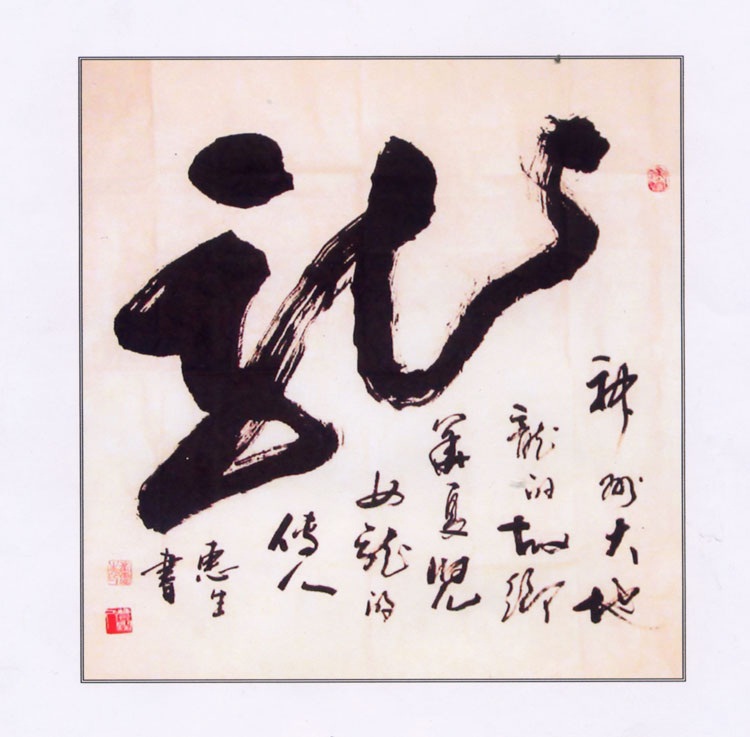 龍
神州大地
龍的故鄉
華夏兒
女龍的
傳人
惠生
書